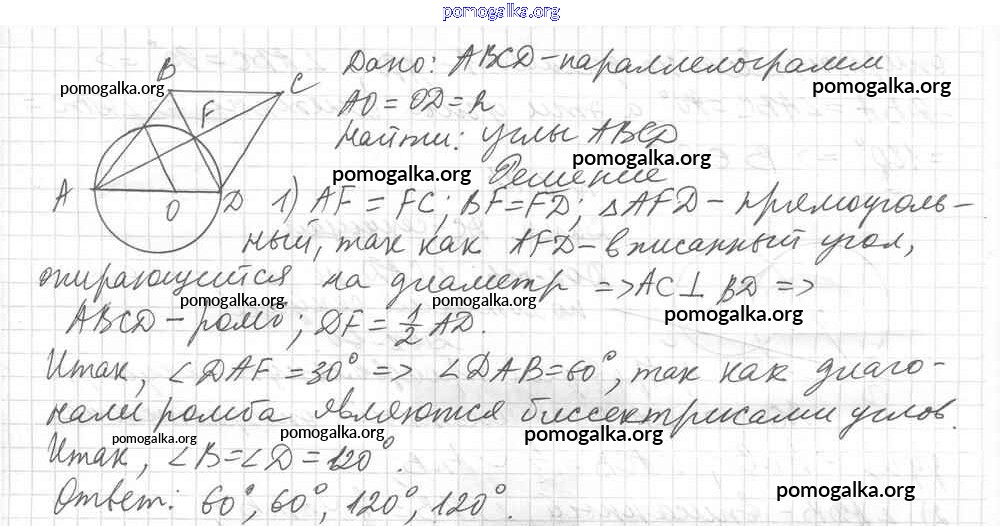 pomogalka.org
Дано: ABCD-параллелограмм
pomogalka.org
pomogalka.org
AO = OD = R
Найти: углы ABCD
pomogalka.org
pomogalka.org
Решение
B
C
F
A
O
D
1) AF = FC; BF = FD; △AFD - прямоуголь-
ный, так как AFD - вписанный угол,
опирающийся на диаметр => AC ⊥ BD =>
pomogalka.org
pomogalka.org
pomogalka.org
ABCD - ромб; DF = 1/2 AD.
Итак, ∠DAF = 30° => ∠DAB = 60°, так как диаго-
нали ромба являются биссектрисами углов.
pomogalka.org
pomogalka.org
pomogalka.org
Итак, ∠B = ∠D = 120°.
Ответ: 60°, 60°, 120°, 120°.
pomogalka.org